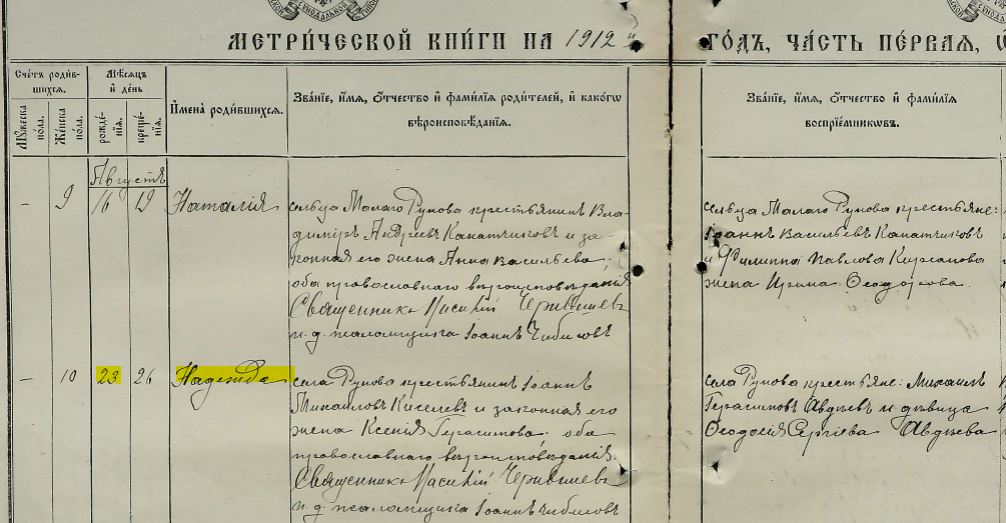 СѴНОДАЛЬНОЙ
МЕТРИ́ЧЕСКОЙ КНИ́ГИ НА 1912 й ГО́ДЪ, ЧА́СТЬ ПЕ́РВАЯ,
Сче́тъ роди́в-
шихся.
Мѣ́сяцъ
и҆ де́нь
Му́жеска
по́ла.
Же́нска
по́ла.
рожде́-
нїѧ.
креще́-
нїѧ.
И҆мена̀ роди́вшихся.
Зва́нїе, и҆́мѧ, ѻ҆́тчество и҆ фами́лїѧ роди́телей, и҆ како́гѡ
вѣроисповѣ́данїѧ.
Зва́нїе, и҆́мѧ, ѻ҆́тчество и҆ фами́лїѧ
воспрїе́мникѡвъ.
Августъ
- 9 16 19 Наталія
сельца Малаго Рунова крестьянинъ Вла-
димiръ Андреевъ Капатчиковъ и за-
конная его жена Анна Васильева;
оба православнаго вѣроисповѣданія
Священникъ Василій Чернышевъ
и. д. псаломщика Іоаннъ Чибисовъ
сельца Малаго Рунова крестьяне:
Іоаннъ Васильевъ Капатчиковъ
и Филиппа Павлова Курганова
жена Ирина Ѳеодорова.
- 10 23 26 Надежда
села Рунова крестьянинъ Іоаннъ
Михаиловъ Киселевъ и законная его
жена Ксенія Герасимова; оба
православнаго вѣроисповѣданія.
Священникъ Василій Чернышевъ
и. д. псаломщика Іоаннъ Чибисовъ
села Рунова крестьяне: Михаилъ
Герасимовъ Авдѣевъ и дѣвица
Ѳеодосія Сергіева Авдѣева